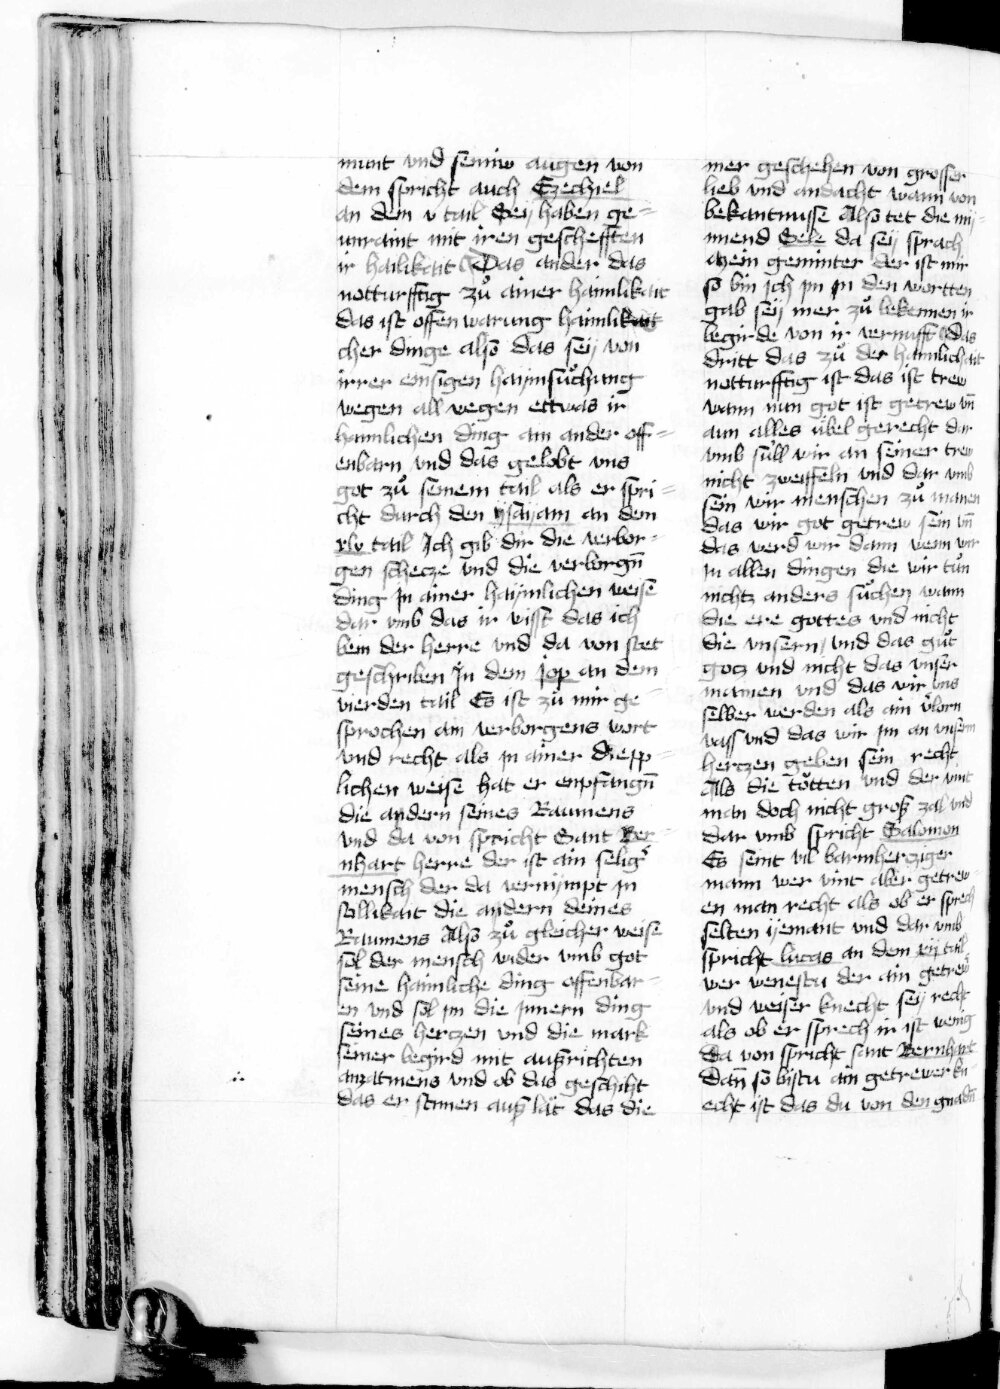 munt vnd seiniw augen von
dem spricht auch Ezechiel
an dem v tail Seÿ haben ge=
unraint mit iren geschefften
ir hailikait Das ander das
notturfftig zů ainer haimlikait
das ist offenwarung haimlikait
cher dinge also das seÿ von
irrer emsigen haÿmsůchung
wegen all wegen ettwas ir
haimlichen ding ain ander off=
enbarn vnd das gelobt vns
got zů seinem tail als er spri=
cht durch den ÿsaÿam an dem
xlv tail Ich gib dir die verbor=
gen schecze vnd die verborgn̄
ding In ainer haÿmlichen weise
dar vmb das ir wisst das ich
bein der herre vnd da von stet
geschriben In dem Jop an dem
vierden tail Es ist zů mir ge=
sprochen ain verborgens wort
vnd recht als in ainer diepp=
lichen weise hat er enpfangn̄
die andern seines Raumens
vnd da von spricht Sant Ber=
nhart herre der ist ain selig
mensch der da vernÿmpt in
stillikait die andern deines
Raumens Also zů gleicher weise
sol der mensch wider vmb got
seine haimliche ding offenbar=
en vnd sol im die innern ding
seines hertzen vnd die mark
seiner begird mit aufrichten
anzatmens vnd ob das geschiht
das er stimen auß lät das die
mer geschehen von grosser
lieb vnd andacht wann von
bekantnusse Also tet die mÿ=
nnend Sele da seÿ sprach
Mein geminter der ist mir
so bin ich im in den wortten
gab seÿ mer zů bekennen ir
begirde von ir vernufft das
dritt das zů der haimlichait
notturfftig ist das ist trew
wann nun got ist getrew vn̄
aun alles übel gerecht dar
vmb süll wir an seiner trew
nicht zweiffeln vnd dar vmb
sein wir menschen zů manen
das wir got getrew sein vn̄
das werd wir dann wenn wir
In allen dingen die wir tůn
nichtz anders sůchen wann
die ere gottes vnd nicht
die vnsern vnd das gůt
gotz vnd nicht das vnser
mainen vnd das wir vns
selber werden als ain vlorn
vass vnd das wir im an vnserm
hertzen geben sein recht
Als die tötten vnd der vint
man doch nicht groß zal vnd
dar vmb spricht Salomon
Es seint vil barmhercziger
mann wer vint aber getrew
en man recht als ob er sprech
selten ÿemant vnd dar vmb
spricht lucas an dem xij tail
wer wenestu der ain getrew
vnd weiser knecht seÿ recht
als ob er sprech ir ist wenig
da von spricht sant Bernhart
Dan̄ so bistu ain getrewer kn
echt ist das du von den gnadn̄